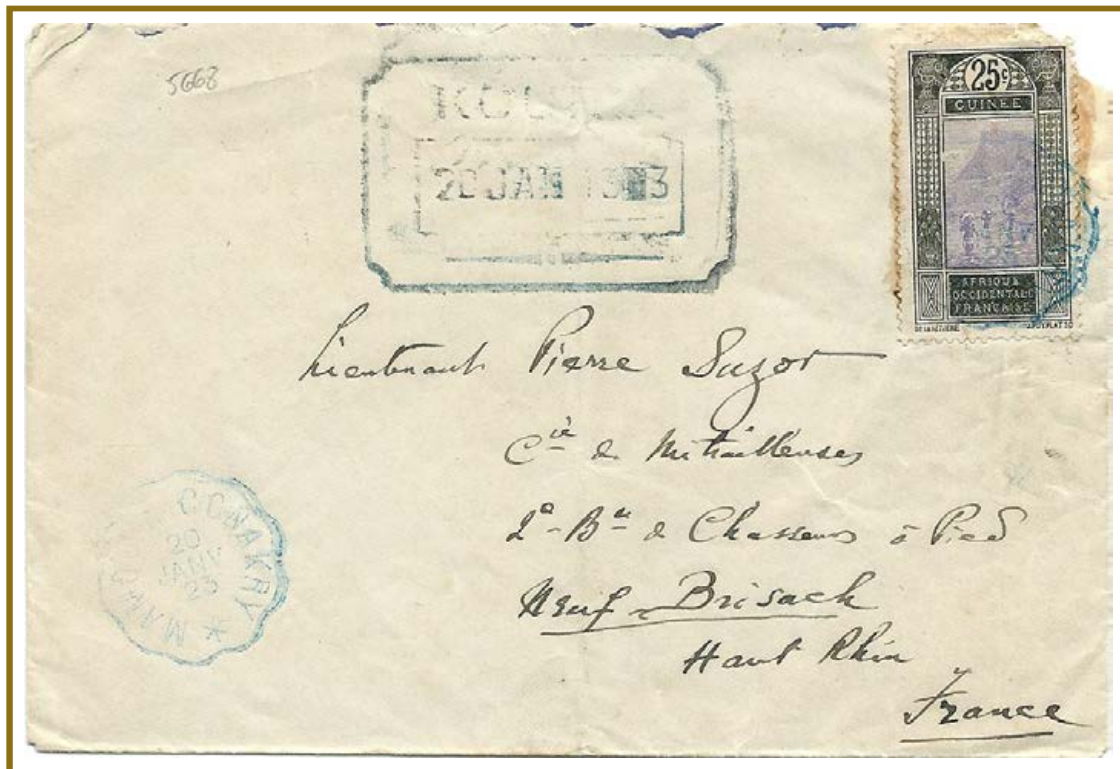 5668
20 JAN
25c
GUINÉE
AFRIQUE
OCCIDENTALE
FRANÇAISE
Lieutenant Pierre Suzor
Cie de Mitrailleuses
2e Bon de Chasseurs à Pied
Neuf-Brisach
Haut Rhin
France
CONAKRY *
20
JANV
23